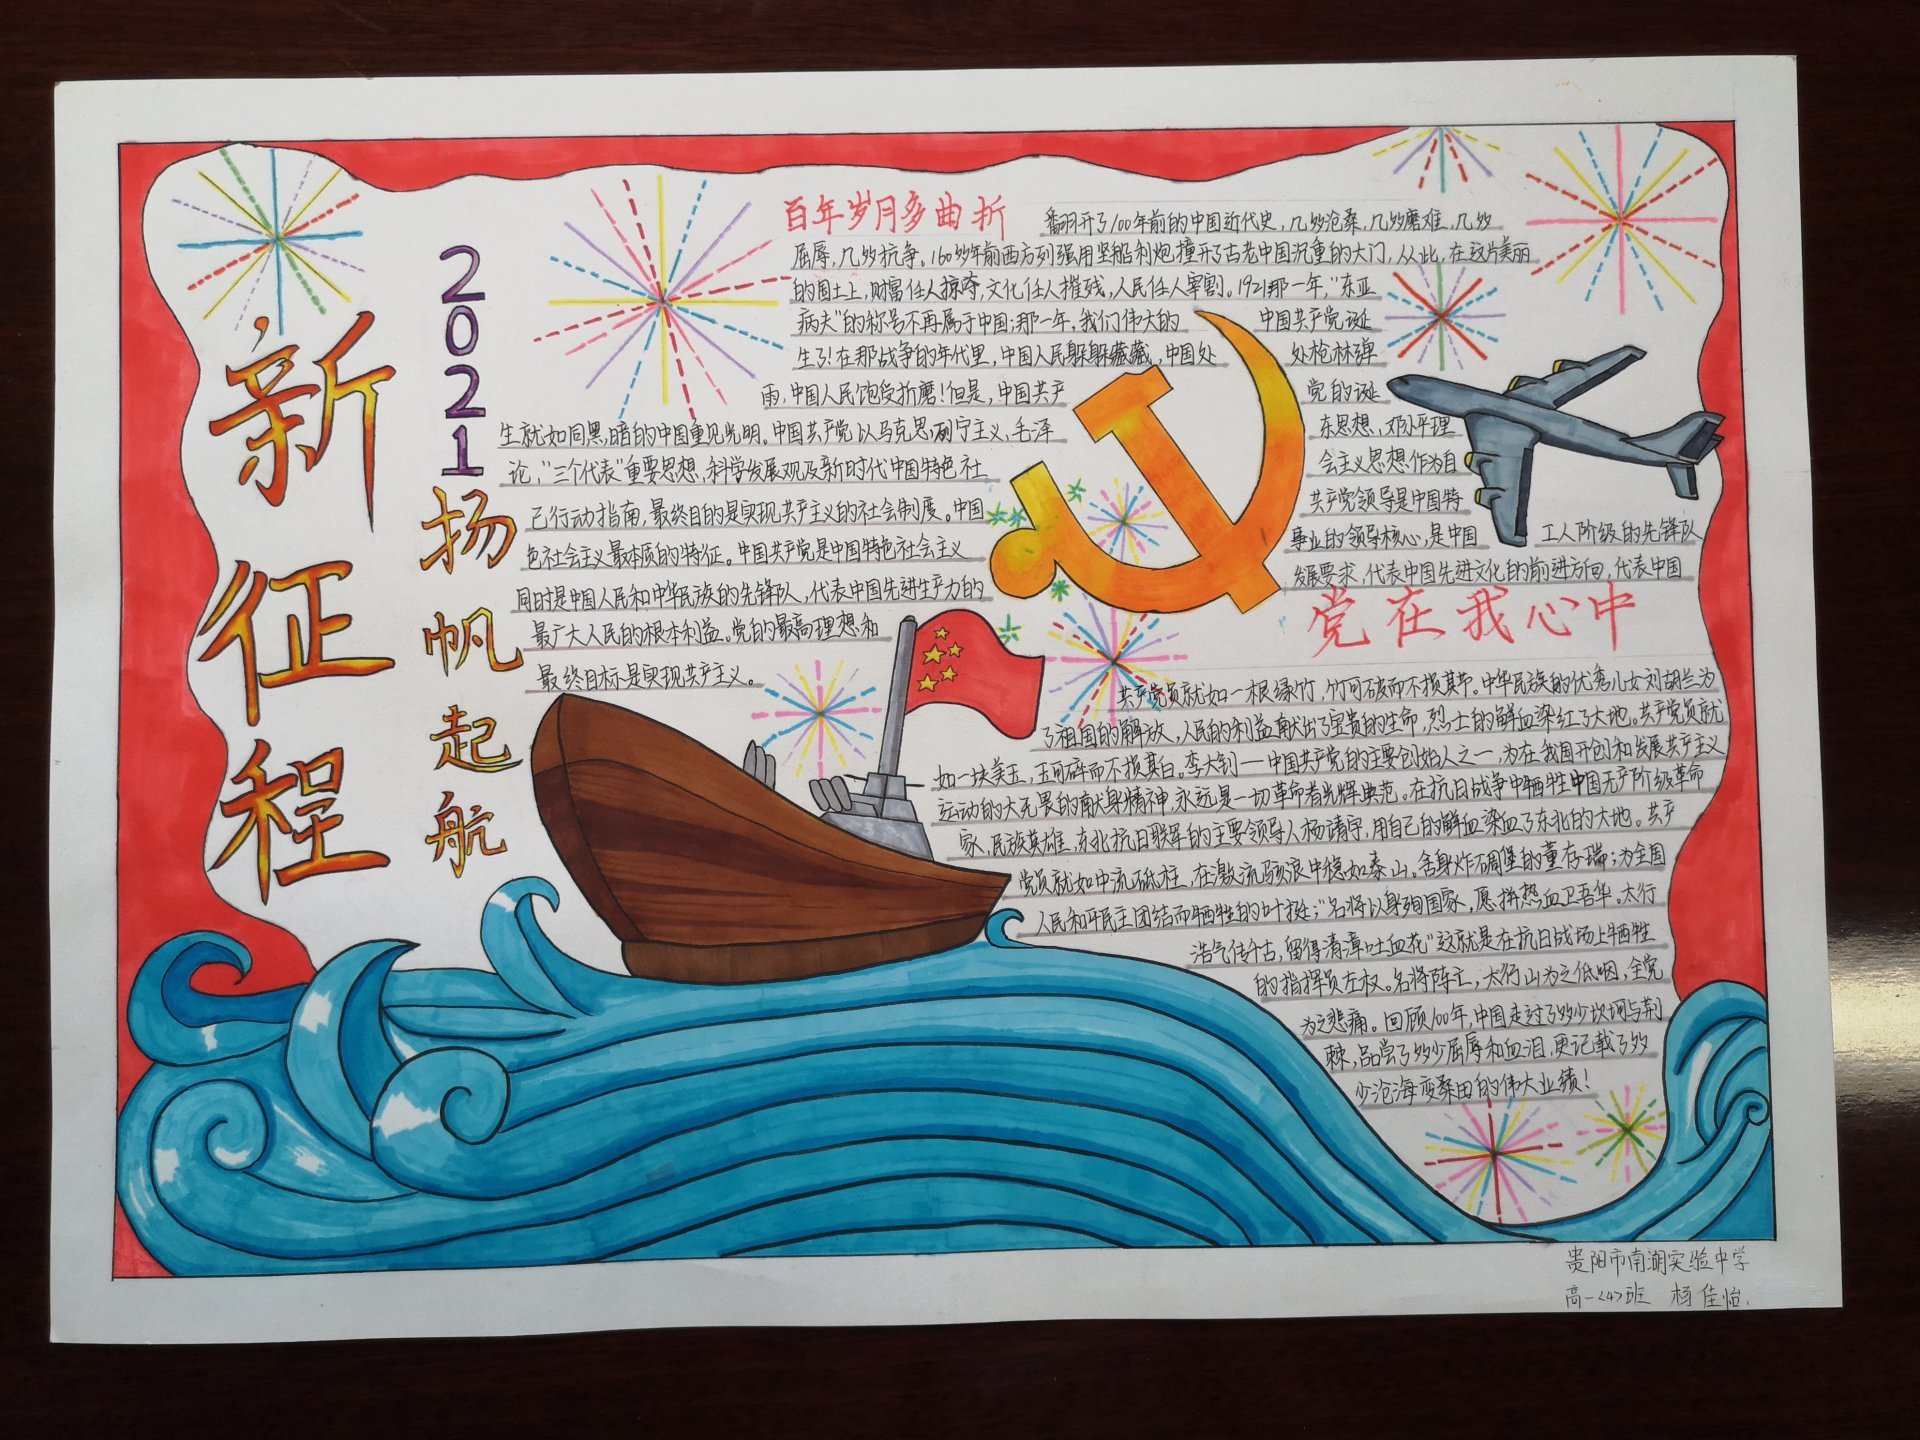 新征程
2021扬帆起航
百年岁月多曲折
翻开了100年前的中国近代史,几多沧桑,几多磨难,几多
屈辱,几多抗争。160多年前西方列强用坚船利炮撞开了古老中国沉重的大门,从此,在这片美丽
的国土上,财富任人掠夺,文化任人摧残,人民任人宰割。1921那一年,“东亚
病夫”的称号不再属于中国;那一年,我们伟大的 中国共产党诞
生了!在那战争的年代里,中国人民躲躲藏藏,中国处 处枪林弹
雨,中国人民饱受折磨!但是,中国共产 党的诞
生就如同黑暗的中国重见光明。中国共产党以马克思列宁主义、毛泽 东思想、邓小平理
论,“三个代表”重要思想,科学发展观及新时代中国特色社 会主义思想作为自
己行动指南,最终目的是实现共产主义的社会制度。中国 共产党领导是中国特
色社会主义最本质的特征。中国共产党是中国特色社会主义 事业的领导核心,是中国 工人阶级的先锋队
同时是中国人民和中华民族的先锋队,代表中国先进生产力的 发展要求,代表中国先进文化的前进方向,代表中国
最广大人民的根本利益。党的最高理想和
最终目标是实现共产主义。
党在我心中
共产党员就如一根绿竹,竹可破而不损其节。中华民族的优秀儿女刘胡兰为
了祖国的解放,人民的利益献出了宝贵的生命,烈士的鲜血染红了大地。共产党员就
如一块美玉,玉可碎而不损其白。李大钊一中国共产党的主要创始人之一,为在我国开创和发展共产主义
运动的大无畏的献身精神,永远是一切革命者光辉典范。在抗日战争中牺牲中国无产阶级革命
家、民族英雄,东北抗日联军的主要领导人杨靖宇,用自己的鲜血染血了东北的大地。共产
党员就如中流砥柱,在激流骇浪中稳如泰山。舍身炸碉堡的董存瑞;为全国
人民和平民主团结而牺牲的叶挺;“名将以身殉国家,愿拼热血卫吾华。太行
浩气传千古,留得清漳吐血花”这就是在抗日战场上牺牲
的指挥员左权。名将阵亡,太行山为之低咽,全党
为之悲痛。回顾100年,中国走过了多少坎坷与荆
棘,品尝了多少屈辱和血泪,更记载了多
少沧海变桑田的伟大业绩!
贵阳市南湖实验中学
高一<4>班 杨佳怡.